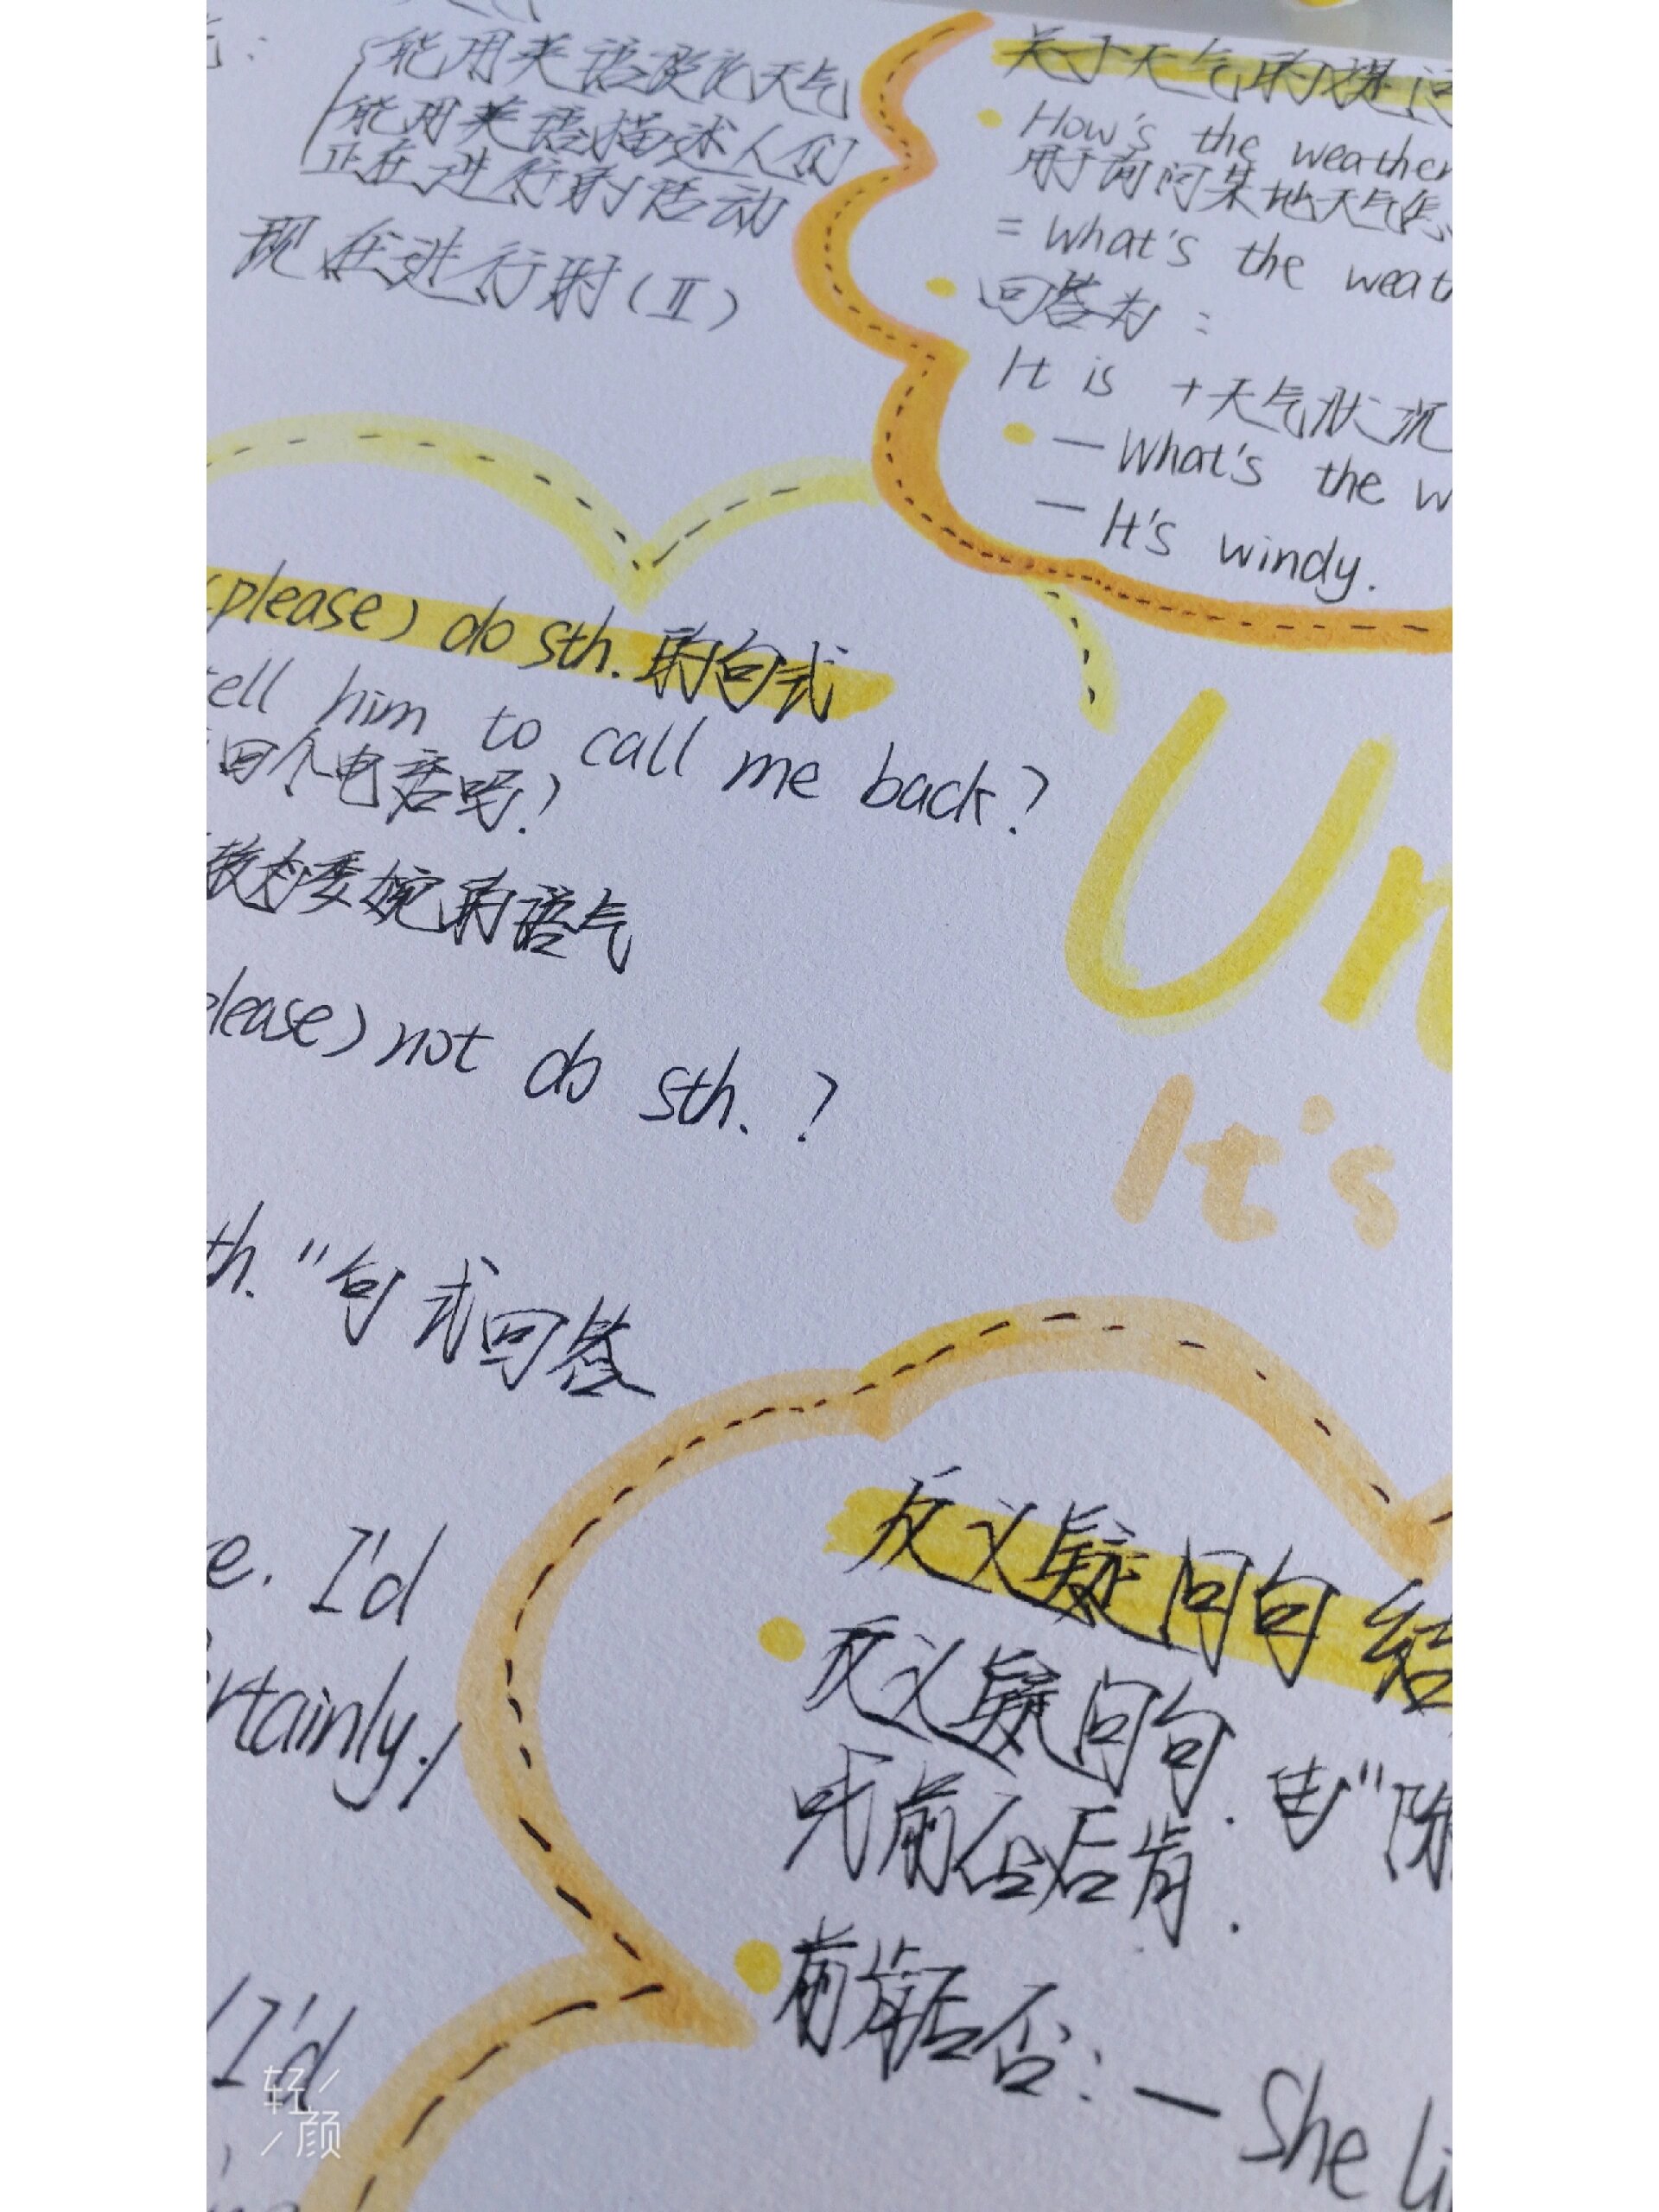 能用英语谈论天气
能用英语描述人们
正在进行的活动
现在进行时(Ⅱ)
关于天气的
How's the weather
用于询问某地天气
= What's the
回答为:
It is +天气状况
— What's the
— It's windy.
please) do sth. 的句式
him to call me back?
回个电话吗?
较为委婉的语气
not do sth.?
"句式回答
I'd
Un
It's
反义疑问句
反义疑问句. 由"
或前否后肯.
前肯后否: — She
I'd
轻颜